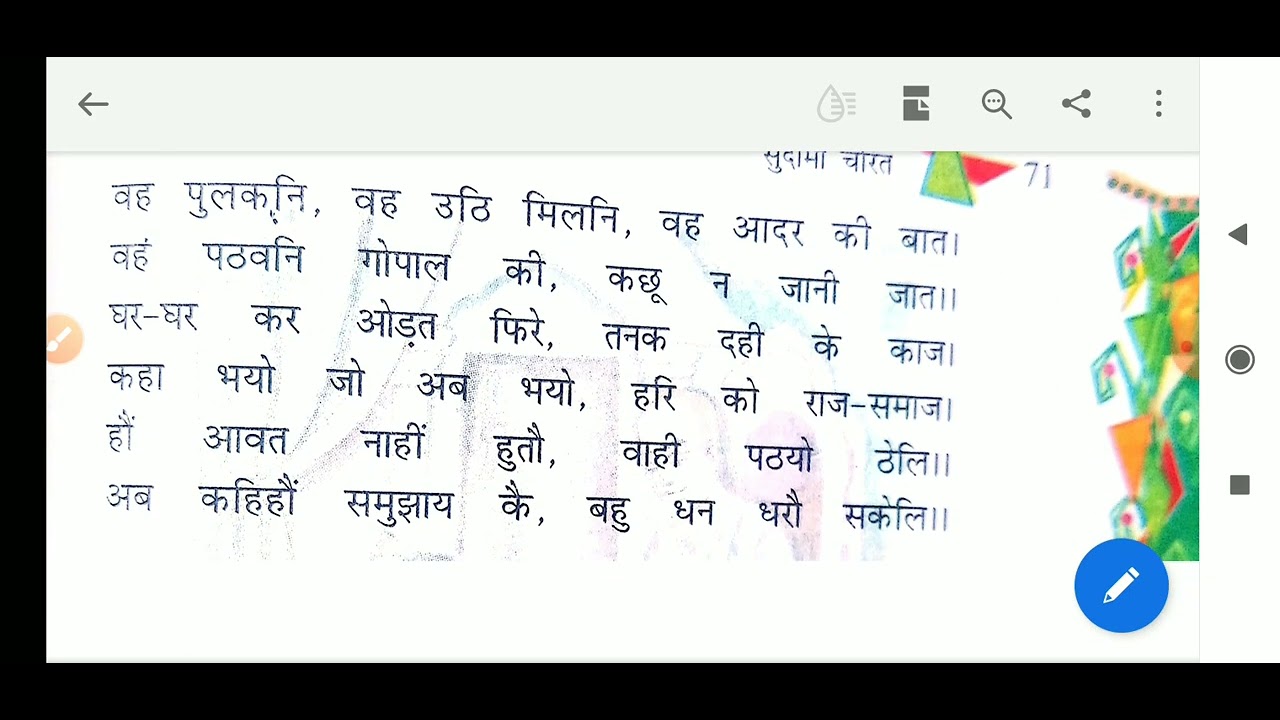 सुदामा चरित 71
वह पुलकनि, वह उठि मिलनि, वह आदर की बात।
वहं पठवनि गोपाल की, कछू न जानी जात।।
घर-घर कर ओड़त फिरे, तनक दही के काज।
कहा भयो जो अब भयो, हरि को राज-समाज।
हौं आवत नाहीं हुतौ, वाही पठयो ठेलि।।
अब कहिहौं समुझाय कै, बहु धन धरौ सकेलि।।